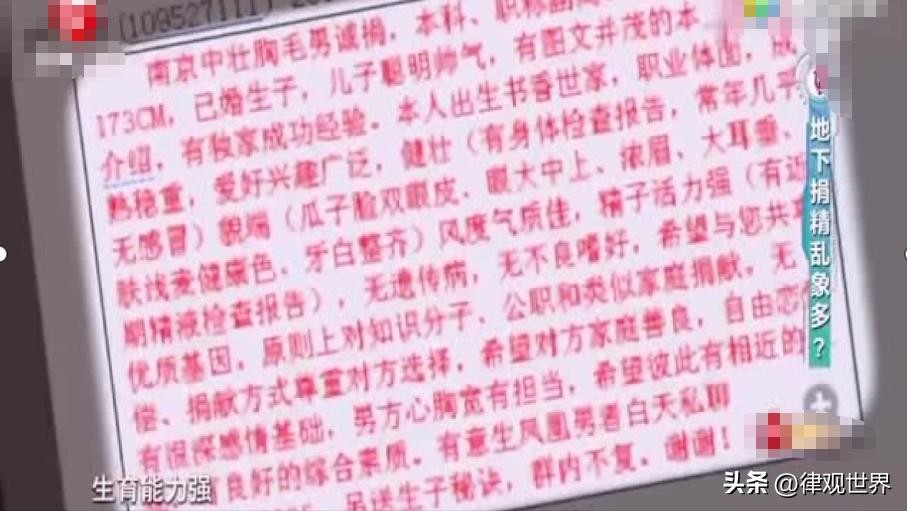 (109527111)
南京中壮胸毛男诚捐，本科、职称副高
173CM，已婚生子，儿子聪明帅气，有图文并茂的本
介绍，有独家成功经验。本人出生书香世家，职业体面，成
熟稳重，爱好兴趣广泛，健壮（有身体检查报告，常年几乎
无感冒）貌端（瓜子脸双眼皮、眼大中上、浓眉、大耳垂、
肤浅麦健康色、牙白整齐）风度气质佳，精子活力强（有近
期精液检查报告），无遗传病，无不良嗜好，希望与您共享
优质基因，原则上对知识分子、公职和类似家庭捐献。无
偿、捐献方式尊重对方选择，希望对方家庭善良，自由恋
有很深感情基础，男方心胸宽有担当，希望彼此有相近的
良好的综合素质。有意生凤凰男者白天私聊
另送生子秘诀，群内不复。谢谢！
地下捐精乱象多？
生育能力强
头条 @律观世界